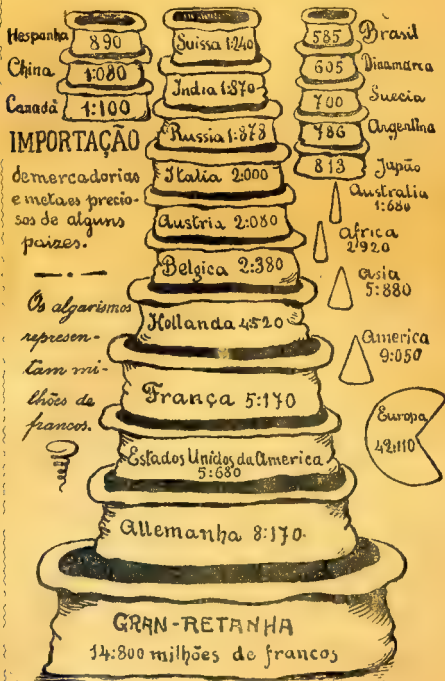 Hespanha
890
China
1:080
Canadá
1:100
IMPORTAÇÃO
de mercadorias
e metaes precio-
sos de alguns
paizes.
Os algarismos
represen-
tam mi-
lhões de
francos.
Suissa 1:240
India 1:870
Russia 1:878
Italia 2:000
Austria 2:080
Belgica 2:380
Hollanda 4:520
França 5:170
Estados Unidos da America
5:680
Allemanha 8:170
GRAN-RETANHA
14:800 milhões de francos
585 Brasil
605 Dinamarca
700 Suecia
786 Argentina
813 Japão
Australia
1:680
Africa
2:920
Asia
5:880
America
9:050
Europa
42:110